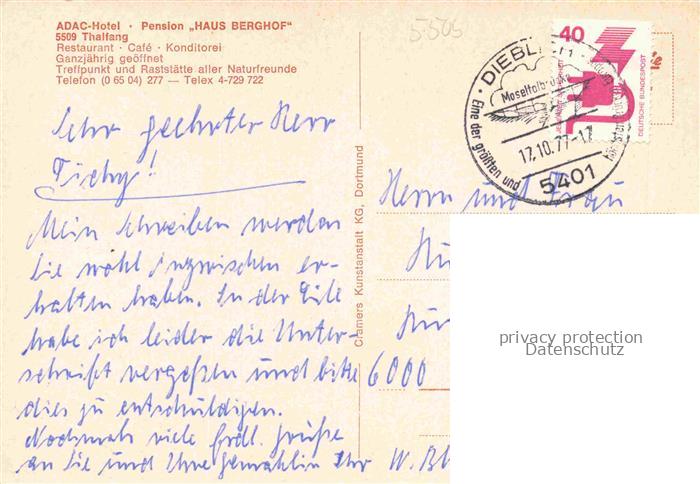 ADAC-Hotel · Pension „HAUS BERGHOF"
5509 Thalfang
Restaurant · Café · Konditorei
Ganzjährig geöffnet
Treffpunkt und Raststätte aller Naturfreunde
Telefon (0 65 04) 277 — Telex 4-729 722
5505
40
DEUTSCHE BUNDESPOST
DIEBLICH
Moseltalbrücke
Eine der größten und
17.10.77-17
5401
Sehr geehrter Herr
Tichy!
Mein Schreiben werden
Sie wohl inzwischen er-
halten haben. In der Eile
habe ich leider die Unter-
schrift vergeßen und bitte
dies zu entschuldigen.
Nochmals viele frdl. Grüße
an Sie und Ihre Gemahlin Ihr W. B
Cramers Kunstanstalt KG, Dortmund
Herrn und Frau
6000
privacy protection
Datenschutz